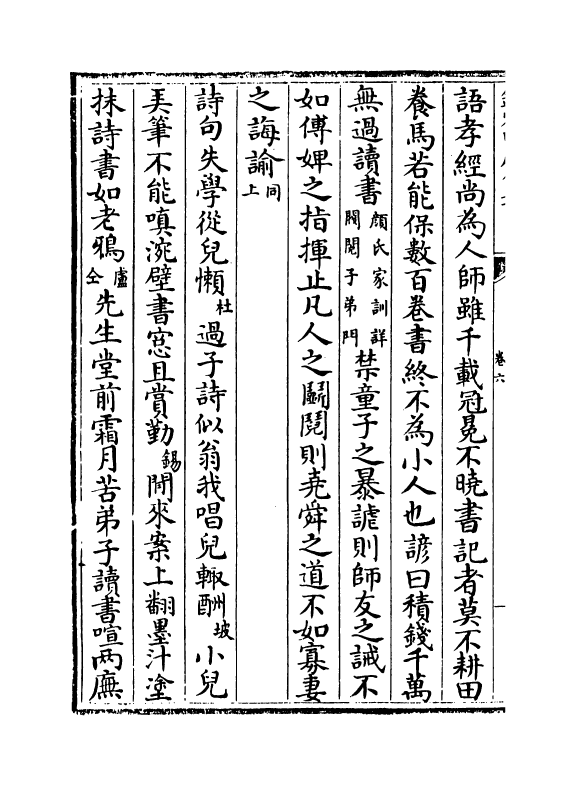 語孝經尚為人師雖千載冠冕不曉書記者莫不耕田
養馬若能保數百卷書終不為小人也諺曰積錢千萬
無過讀書顔氏家訓詳閥閱子弟門禁童子之暴謔則師友之誡不
如傅婢之指揮止凡人之鬭䦧則堯舜之道不如寡妻
之誨諭同上
詩句失學從兒懶杜過子詩似翁我唱兒輙酬坡小兒
弄筆不能嗔涴壁書窓且賞勤錫閒來案上翻墨汁塗
抹詩書如老鴉盧仝先生堂前霜月苦弟子讀書喧兩廡
卷六